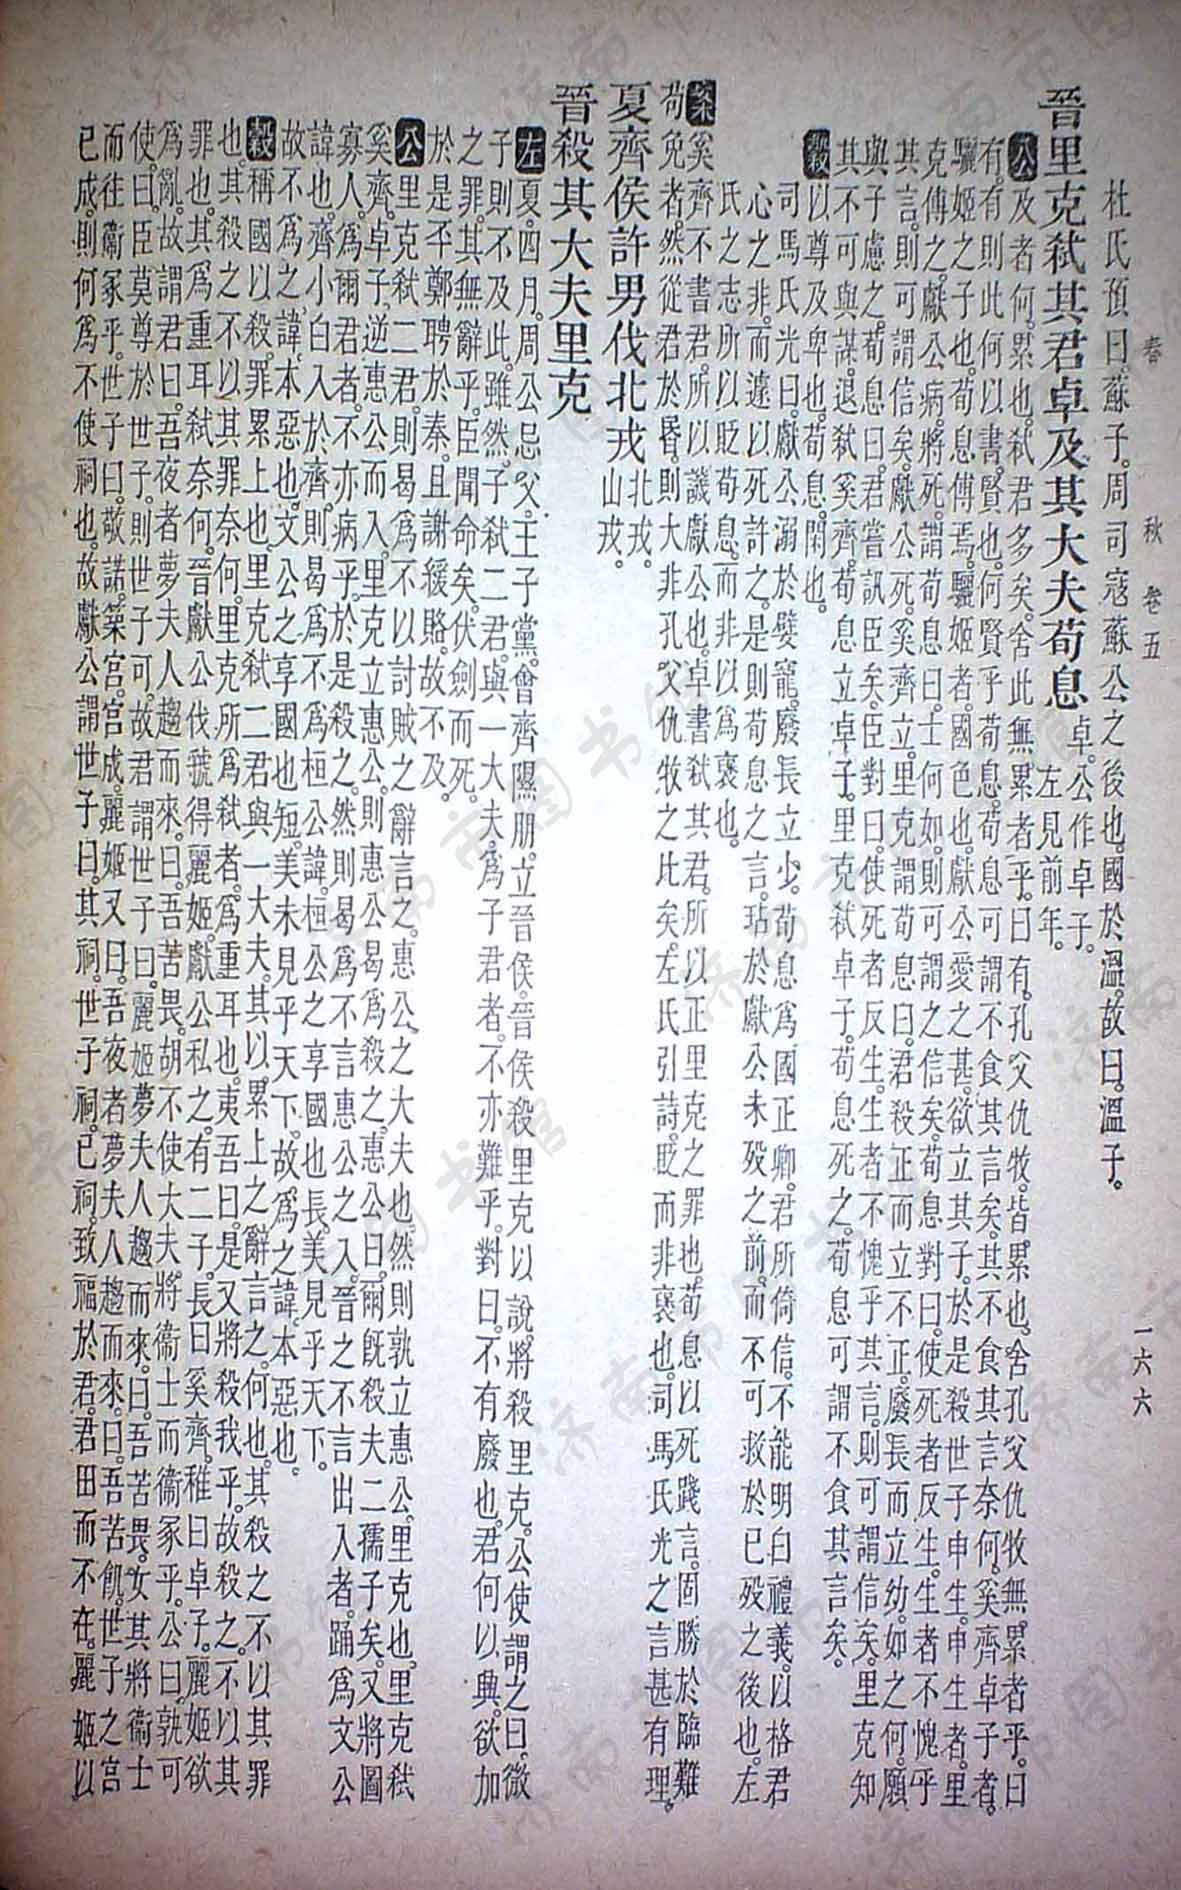 春 秋 卷五 一六六
杜氏預曰。蘇子。周司寇蘇公之後也。國於溫。故曰。溫子。
晉里克弒其君卓及其大夫荀息 卓。公作卓子。左見前年。
公及者何。累也。弒君多矣。舍此無累者乎。曰有。孔父仇牧。皆累也。舍孔父仇牧無累者乎。曰
有。有則此何以書。賢也。何賢乎荀息。荀息可謂不食其言矣。其不食其言奈何。奚齊卓子者。
驪姬之子也。荀息傅焉。驪姬者。國色也。獻公愛之甚。欲立其子。於是殺世子申生。申生者。里
克傅之。獻公病。將死。謂荀息曰。士何如。則可謂之信矣。荀息對曰。使死者反生。生者不愧乎
其言。則可謂信矣。獻公死。奚齊立。里克謂荀息曰。君殺正而立不正。廢長而立幼。如之何。願
與子慮之。荀息曰。君嘗訊臣矣。臣對曰。使死者反生。生者不愧乎其言。則可謂信矣。里克知
其不可與謀。退弒奚齊。荀息立卓子。里克弒卓子。荀息死之。荀息可謂不食其言矣。
穀以尊及卑也。荀息。閑也。
司馬氏光曰。獻公溺於嬖寵。廢長立少。荀息為國正卿。君所倚信。不能明白禮義。以格君
心之非。而遽以死許之。是則荀息之言。玷於獻公未歿之前。而不可救於已歿之後也。左
氏之志。所以貶荀息。而非以為褒也。
案奚齊不書君。所以譏獻公也。卓書弒其君。所以正里克之罪也。荀息以死踐言。固勝於臨難
苟免者。然從君於昏。則大非孔父仇牧之比矣。左氏引詩。貶而非褒也。司馬氏光之言甚有理。
夏齊侯許男伐北戎 北戎。山戎。
晉殺其大夫里克
左夏。四月。周公忌父。王子黨。會齊隰朋。立晉侯。晉侯殺里克以說。將殺里克。公使謂之曰。微
子則不及此。雖然。子弒二君。與一大夫。為子君者。不亦難乎。對曰。不有廢也。君何以興。欲加
之罪。其無辭乎。臣聞命矣。伏劍而死。
於是丕鄭聘於秦。且謝緩賂。故不及。
公里克弒二君。則曷為不以討賊之辭言之。惠公之大夫也。然則孰立惠公。里克也。里克弒
奚齊。卓子。逆惠公而入。里克立惠公。則惠公曷為殺之。惠公曰。爾旣殺夫二孺子矣。又將圖
寡人。為爾君者。不亦病乎。於是殺之。然則曷為不言惠公之入。晉之不言出入者。踊為文公
諱也。齊小白入於齊。則曷為不為桓公諱。桓公之享國也長。美見乎天下。
故不為之諱。本惡也。文公之享國也短。美未見乎天下。故為之諱。本惡也。
穀稱國以殺。罪累上也。里克弒二君與一大夫。其以累上之辭言之。何也。其殺之不以其罪
也。其殺之不以其罪奈何。里克所為弒者。為重耳也。夷吾曰。是又將殺我乎。故殺之。不以其
罪也。其為重耳弒奈何。晉獻公伐虢。得麗姬。獻公私之。有二子。長曰奚齊。稚曰卓子。麗姬欲
為亂。故謂君曰。吾夜者夢夫人趨而來。曰。吾苦畏。胡不使大夫。將衞士而衞冢乎。公曰。孰可
使。曰。臣莫尊於世子。則世子可。故君謂世子曰。麗姬夢夫人趨而來。曰。吾苦畏。女其將衞士
而往衞冢乎。世子曰。敬諾。築宮。宮成。麗姬又曰。吾夜者夢夫人趨而來。曰。吾苦飢。世子之宮
已成。則何為不使祠也。故獻公謂世子曰。其祠。世子祠。已祠。致福於君。君田而不在。麗姬以